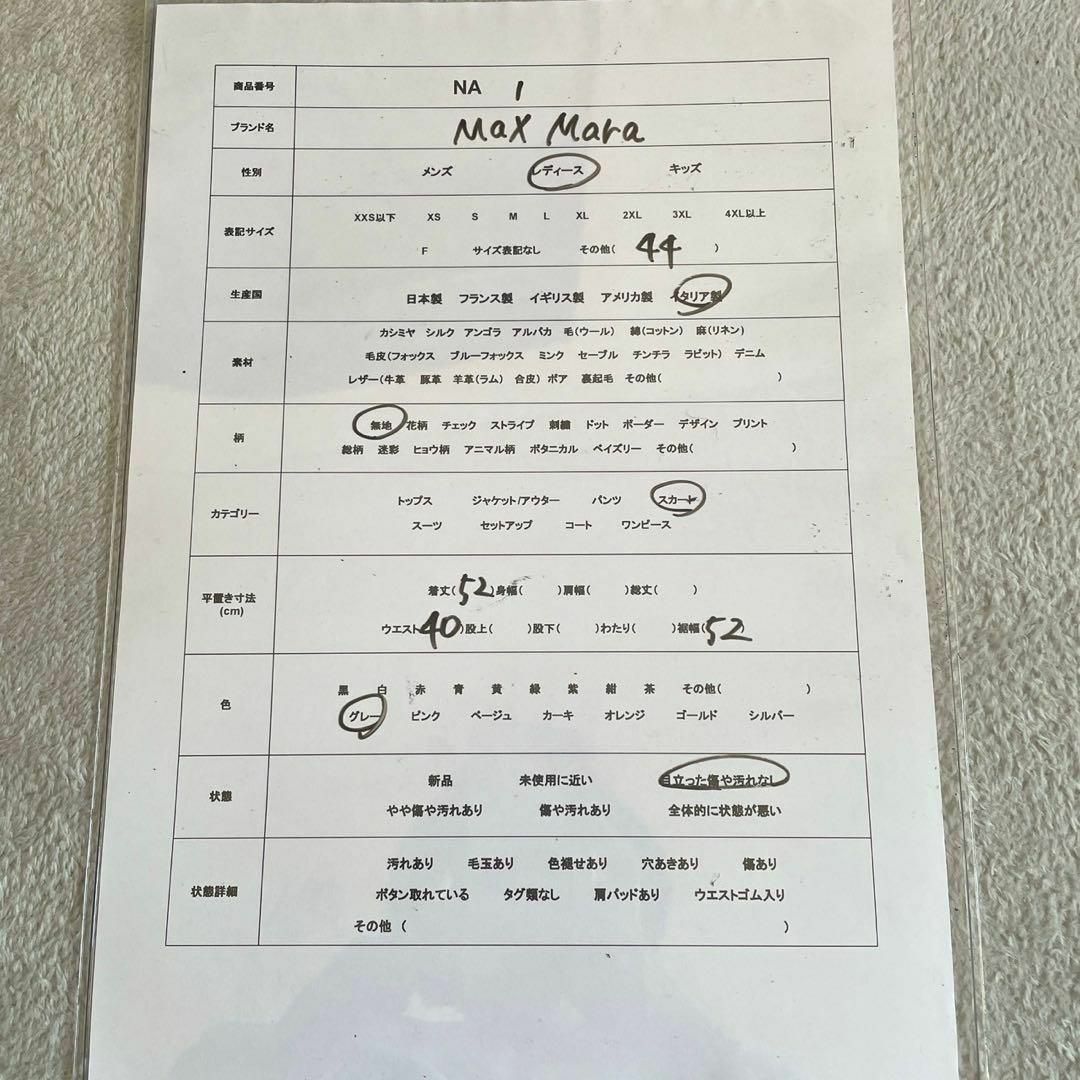 商品番号 NA 1
ブランド名 Max Mara
性別 メンズ レディース キッズ
XXS以下 XS S M L XL 2XL 3XL 4XL以上
表記サイズ
F サイズ表記なし その他( 44 )
生産国 日本製 フランス製 イギリス製 アメリカ製 イタリア製
カシミヤ シルク アンゴラ アルパカ 毛(ウール) 綿(コットン) 麻(リネン)
素材 毛皮(フォックス ブルーフォックス ミンク セーブル チンチラ ラビット) デニム
レザー(牛革 豚革 羊革(ラム) 合皮) ボア 裏起毛 その他( )
無地 花柄 チェック ストライプ 刺繍 ドット ボーダー デザイン プリント
柄
総柄 迷彩 ヒョウ柄 アニマル柄 ボタニカル ペイズリー その他( )
トップス ジャケット/アウター パンツ スカート
カテゴリー
スーツ セットアップ コート ワンピース
着丈(52)身幅( )肩幅( )総丈( )
平置き寸法
(cm)
ウエスト(40)股上( )股下( )わたり( )裾幅(52)
黒 白 赤 青 黄 緑 紫 紺 茶 その他( )
色
グレー ピンク ベージュ カーキ オレンジ ゴールド シルバー
新品 未使用に近い 目立った傷や汚れなし
状態
やや傷や汚れあり 傷や汚れあり 全体的に状態が悪い
汚れあり 毛玉あり 色褪せあり 穴あきあり 傷あり
状態詳細 ボタン取れている タグ類なし 肩パッドあり ウエストゴム入り
その他 ( )